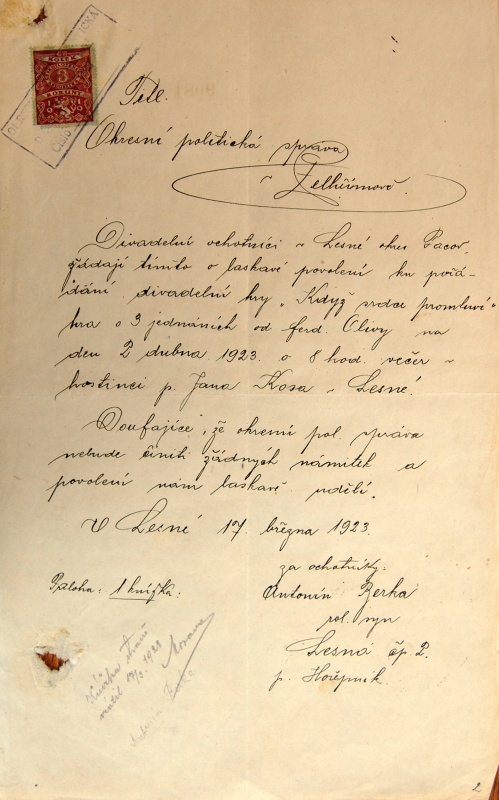 KOLEK
3
KORUNY
1919
Titl.
Okresní politická správa
v Pelhřimově.
Divadelní ochotníci v Lesné okres Pacov,
žádají tímto o laskavé povolení ku pořá-
dání divadelní hry „Když srdce promluví"
hra o 3 jednáních od ferd. Olivy na
den 2 dubna 1923. o 8 hod. večer v
hostinci p. Jana Kosa v Lesné.
Doufajíce, že okresní pol. správa
nebude činiti žádných námitek a
povolení nám laskavě udělí.
V Lesné 17. března 1923.
za ochotníky:
Příloha: 1 knížka:
Antonín Berka
rol. syn
Lesná čp 2.
p. Hořepník.
Knížka
vrátil 1923
2